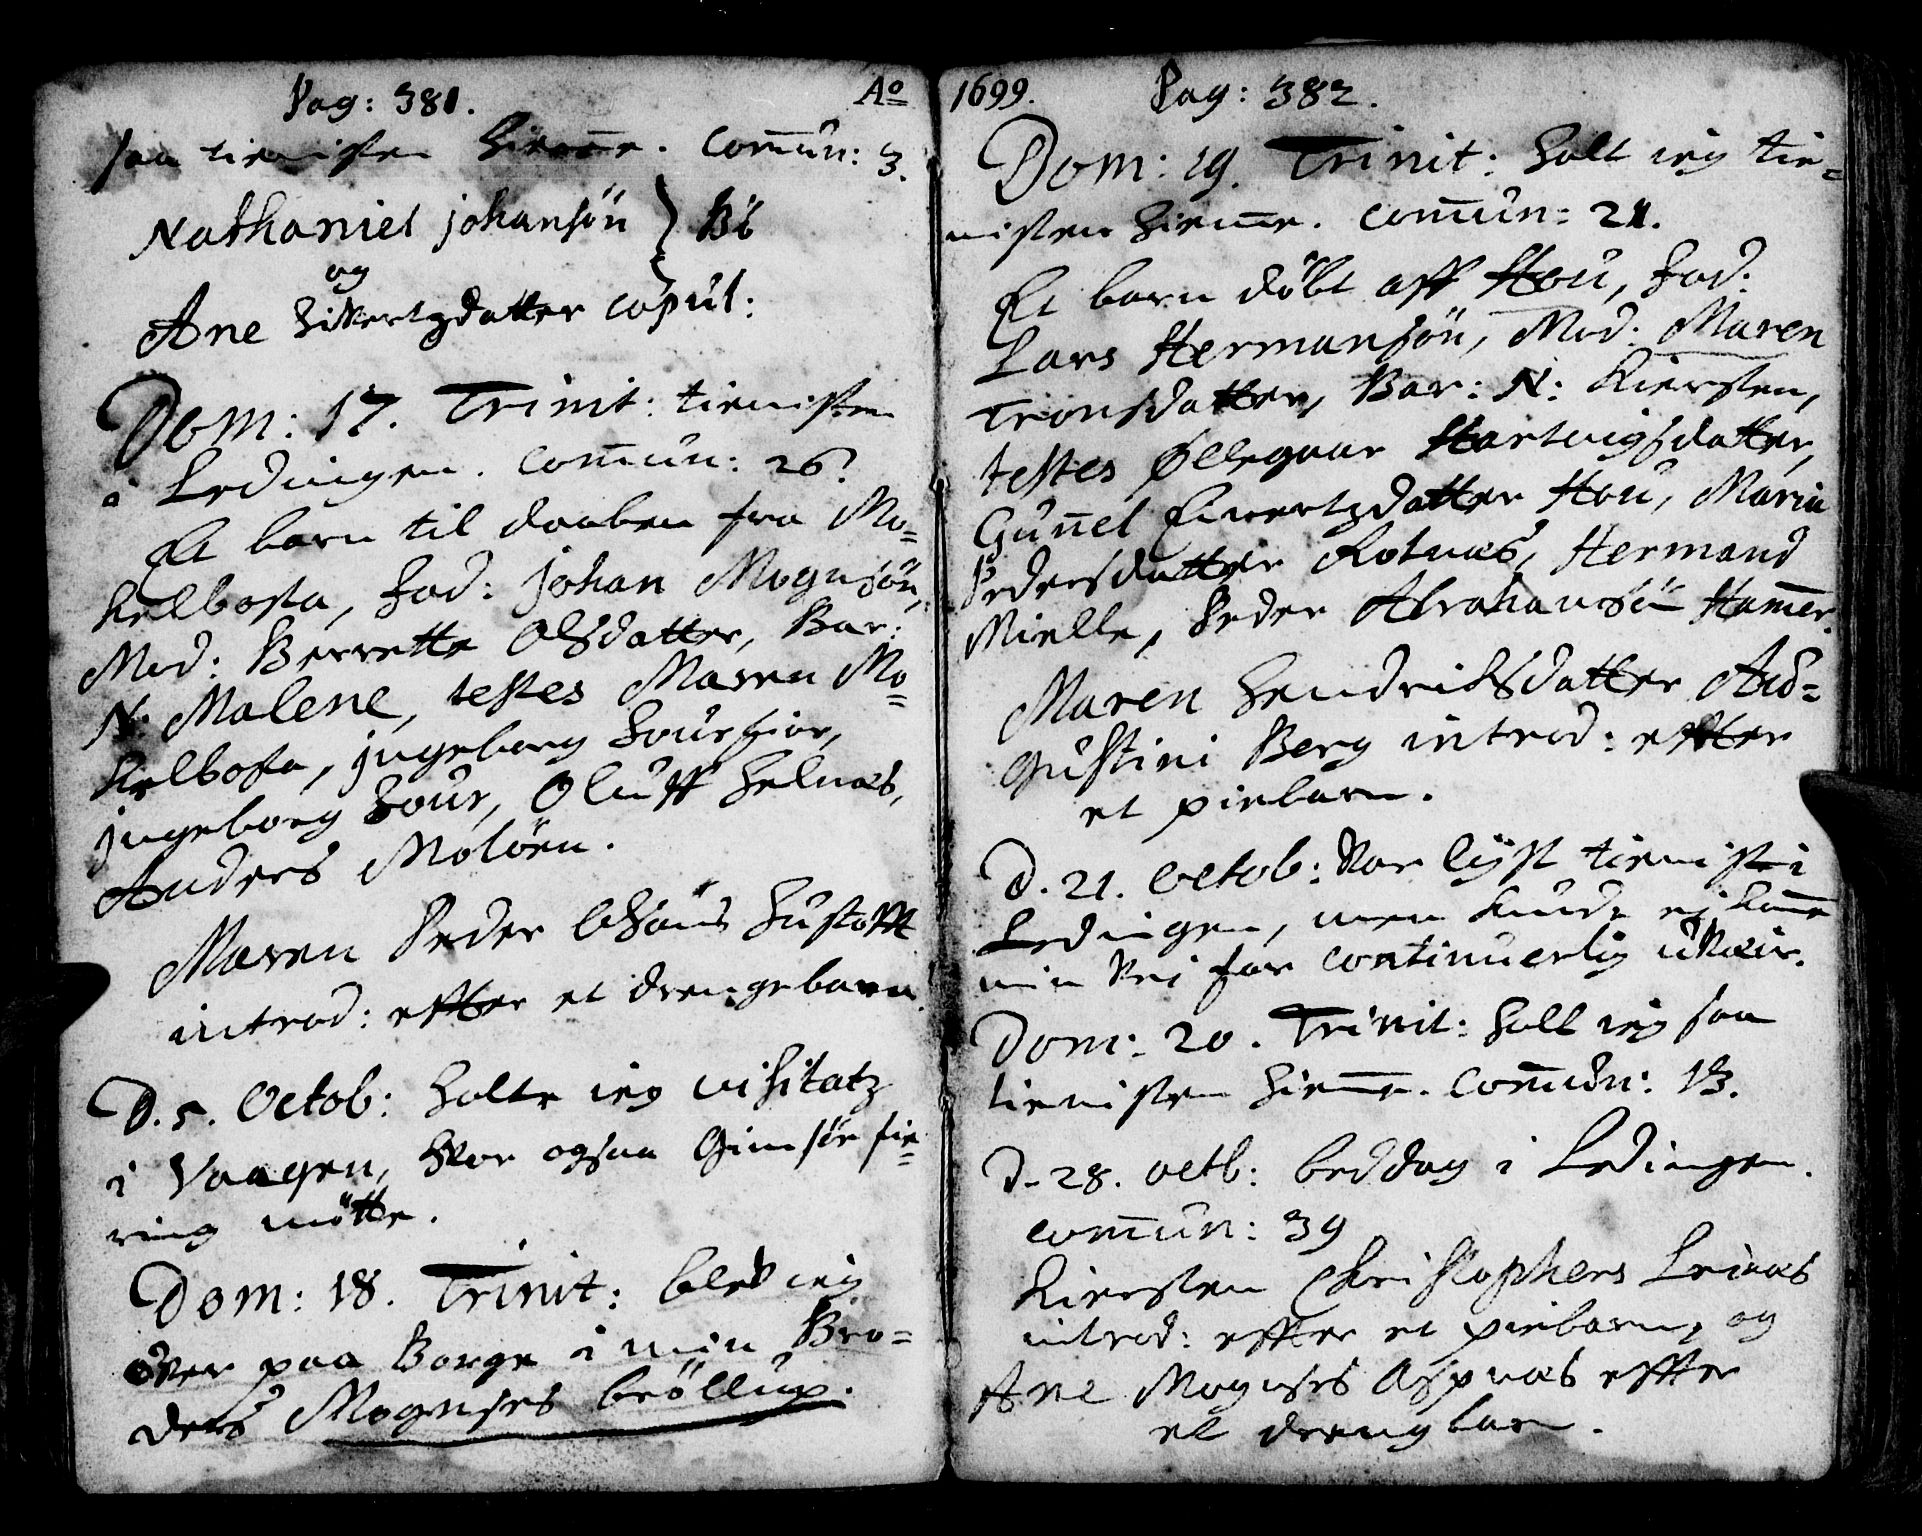 Pag: 381. Ao
saa tienisten hiem̅e. Com̅un: 3.
Nathaniel Johansøn } Bö
og
Ane Sivertzdatter copul:
Dom: 17. Trinit: tienisten
i Lødingen. Com̅un: 26.
Et barn til daaben fra Mo=
kelbosta, Fad: Johan Mognsøn,
Mod: Berrette Olsdatter, Bar:
N: Malene, testes Maren Mo=
kelbosta, Jngeborg
Jngeborg, Oluff
Anders Moløen.
Maren Peder Hustoft
introd: effter et drengebarn.
D. 5. Octob: holte ieg visitatz
i Vaagen, hvor ogsaa Gimsøe fie=
ring mötte.
Dom: 18. Trinit: blev ieg
over paa Borge i min Bro=
ders Mognses bröllup.
1699. Pag: 382.
Dom: 19. Trinit: holt ieg tie=
nisten hiem̅e. Com̅un: 21.
Et barn döbt aff Hou, Fad:
Lars Hermansön, Mod: Maren
Tronsdatter, Bar: N: Kiersten,
testes Øllegaar Hartvigsdatter,
Gun̅el Sivertzdatter Hou, Maria
Pedersdatter Rotnæs, Hermand
Mielle, Peder Abrahamsön Ham̅er.
Maren Hendrichsdatter Au=
gustini Berg introd: effter
et piebarn.
D. 21. Octob: var lyst tienist i
Lødingen, men kunde ej kom̅e
min vei for continuerlig uvæir.
Dom: 20. Trinit: holt ieg saa
tienisten hiem̅e. Com̅un: 13.
D. 28. octb: beddag i Lødingen.
Com̅un: 39
Kiersten Christophers Leinæs
introd: effter et piebarn, og
Ane Mognses Aspnæs effter
et drengbarn.